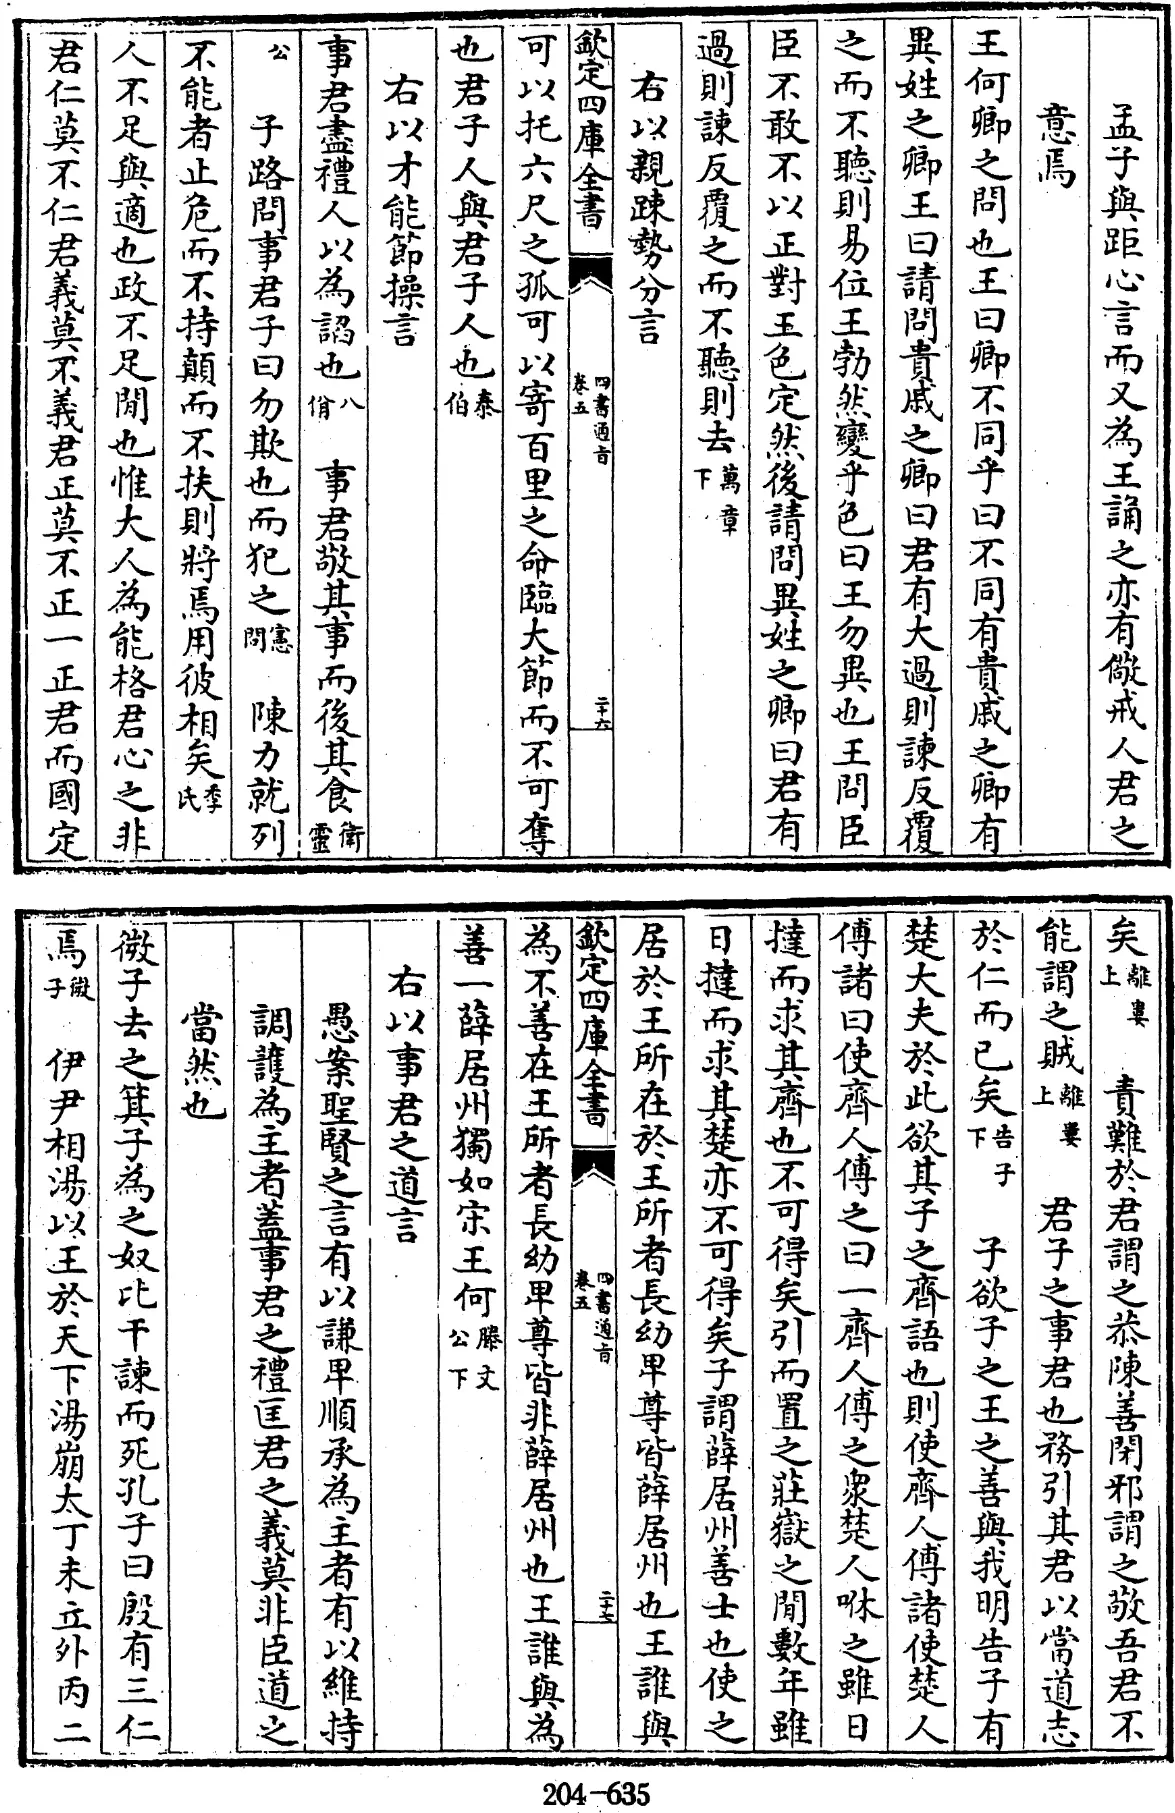 孟子與距心言而又為王誦之亦有儆戒人君之
意焉
王何卿之問也王曰卿不同乎曰不同有貴戚之卿有
異姓之卿王曰請問貴戚之卿曰君有大過則諫反覆
之而不聽則易位王勃然變乎色曰王勿異也王問臣
臣不敢不以正對王色定然後請問異姓之卿曰君有
過則諫反覆之而不聽則去萬章下
右以親疎勢分言
欽定四庫全書 四書通旨卷五 二十六
可以托六尺之孤可以寄百里之命臨大節而不可奪
也君子人與君子人也泰伯
右以才能節操言
事君盡禮人以為諂也八佾 事君敬其事而後其食衛靈
公 子路問事君子曰勿欺也而犯之憲問 陳力就列
不能者止危而不持顛而不扶則將焉用彼相矣季氏
人不足與適也政不足閒也惟大人為能格君心之非
君仁莫不仁君義莫不義君正莫不正一正君而國定
矣離婁上 責難於君謂之恭陳善閉邪謂之敬吾君不
能謂之賊離婁上 君子之事君也務引其君以當道志
於仁而已矣告子下 子欲子之王之善與我明告子有
楚大夫於此欲其子之齊語也則使齊人傅諸使楚人
傅諸曰使齊人傅之曰一齊人傅之衆楚人咻之雖日
撻而求其齊也不可得矣引而置之莊嶽之閒數年雖
日撻而求其楚亦不可得矣子謂薛居州善士也使之
居於王所在於王所者長幼卑尊皆薛居州也王誰與
欽定四庫全書 四書通旨卷五 二十七
為不善在王所者長幼卑尊皆非薛居州也王誰與為
善一薛居州獨如宋王何滕文公下
右以事君之道言
愚案聖賢之言有以謙卑順承為主者有以維持
調護為主者蓋事君之禮匡君之義莫非臣道之
當然也
微子去之箕子為之奴比干諫而死孔子曰殷有三仁
焉微子 伊尹相湯以王於天下湯崩太丁未立外丙二
204-635